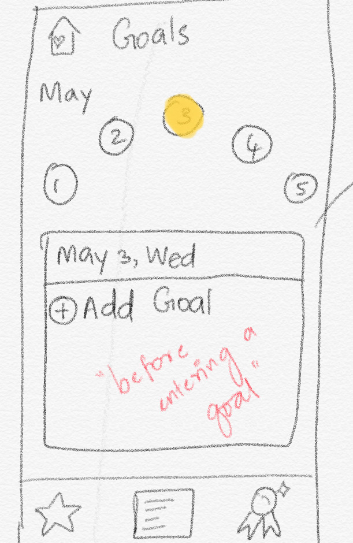 Goals
May
1
2
3
4
5
May 3, Wed
+ Add Goal
"before
entering a
goal"